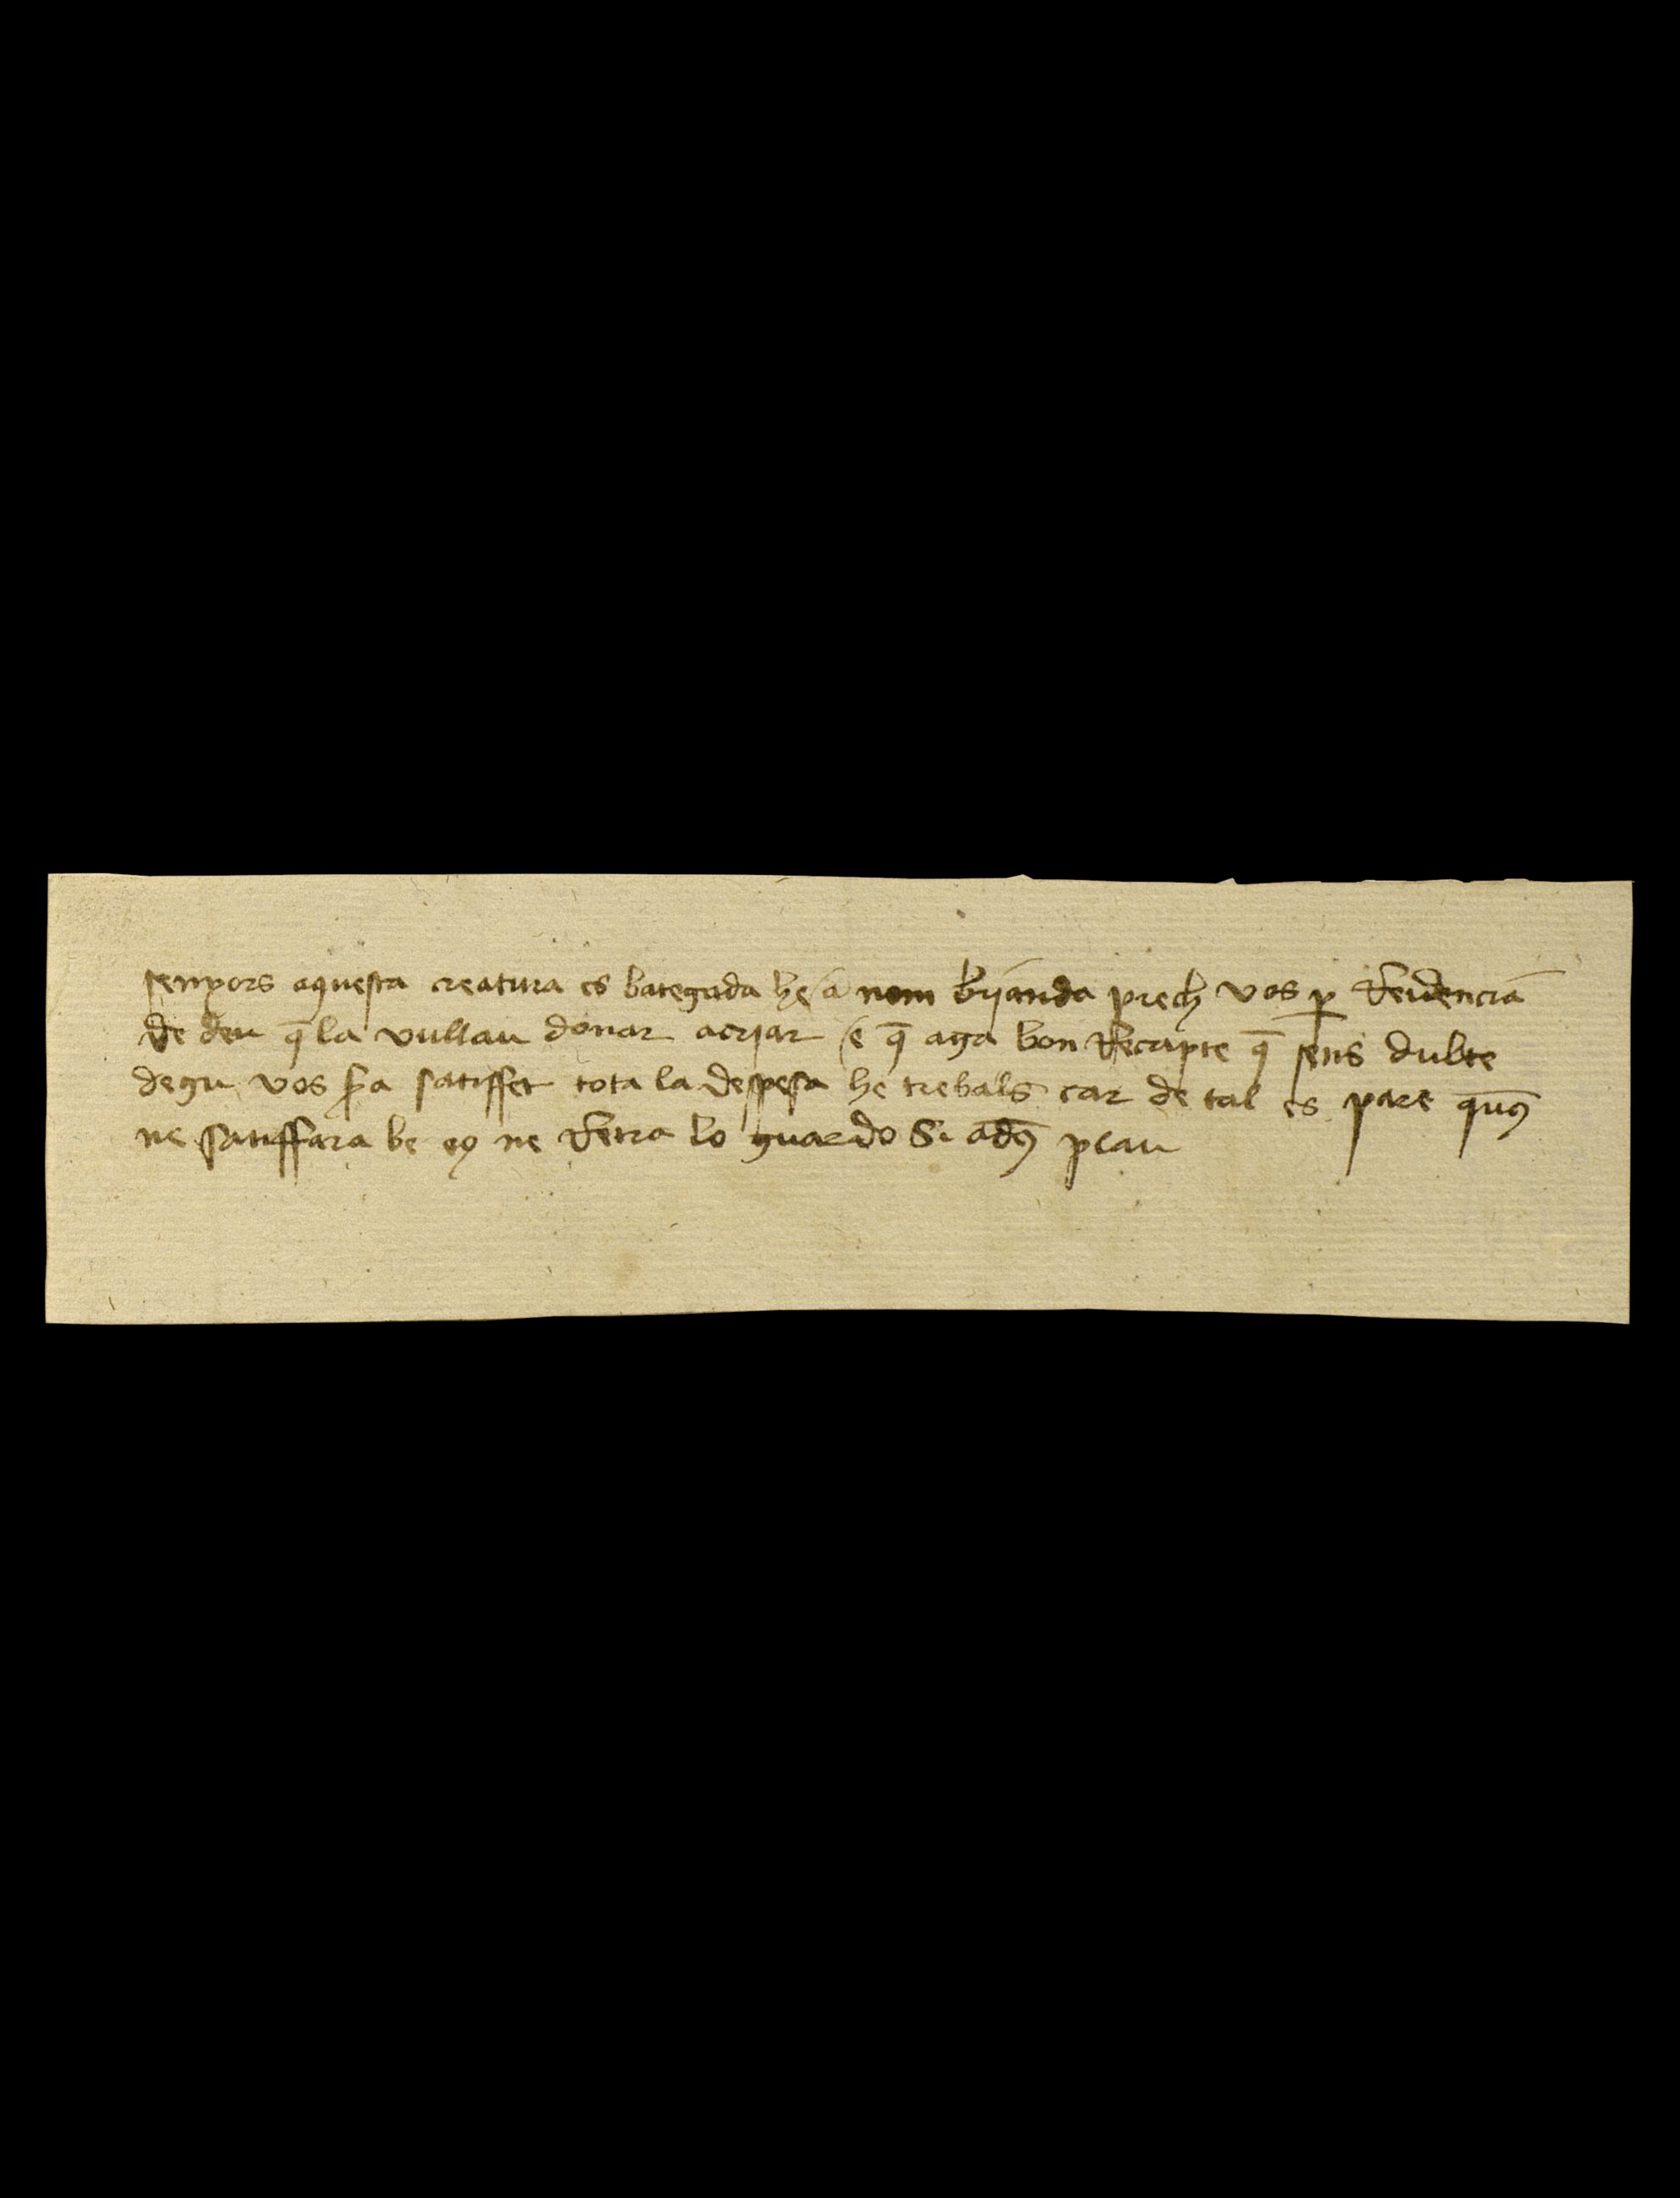 senyors aquesta creatura es bategada he a nom brianda prech vos p̱ Reuerencia
de deu q̄ la vullau donar acriar e q̄ aga bon Recapte q̄ sens dubte
degu vos sera satisffet tota la despesa he trebals car de tal es pare
ne satisffara be ey ne Retra lo guardo Si plau